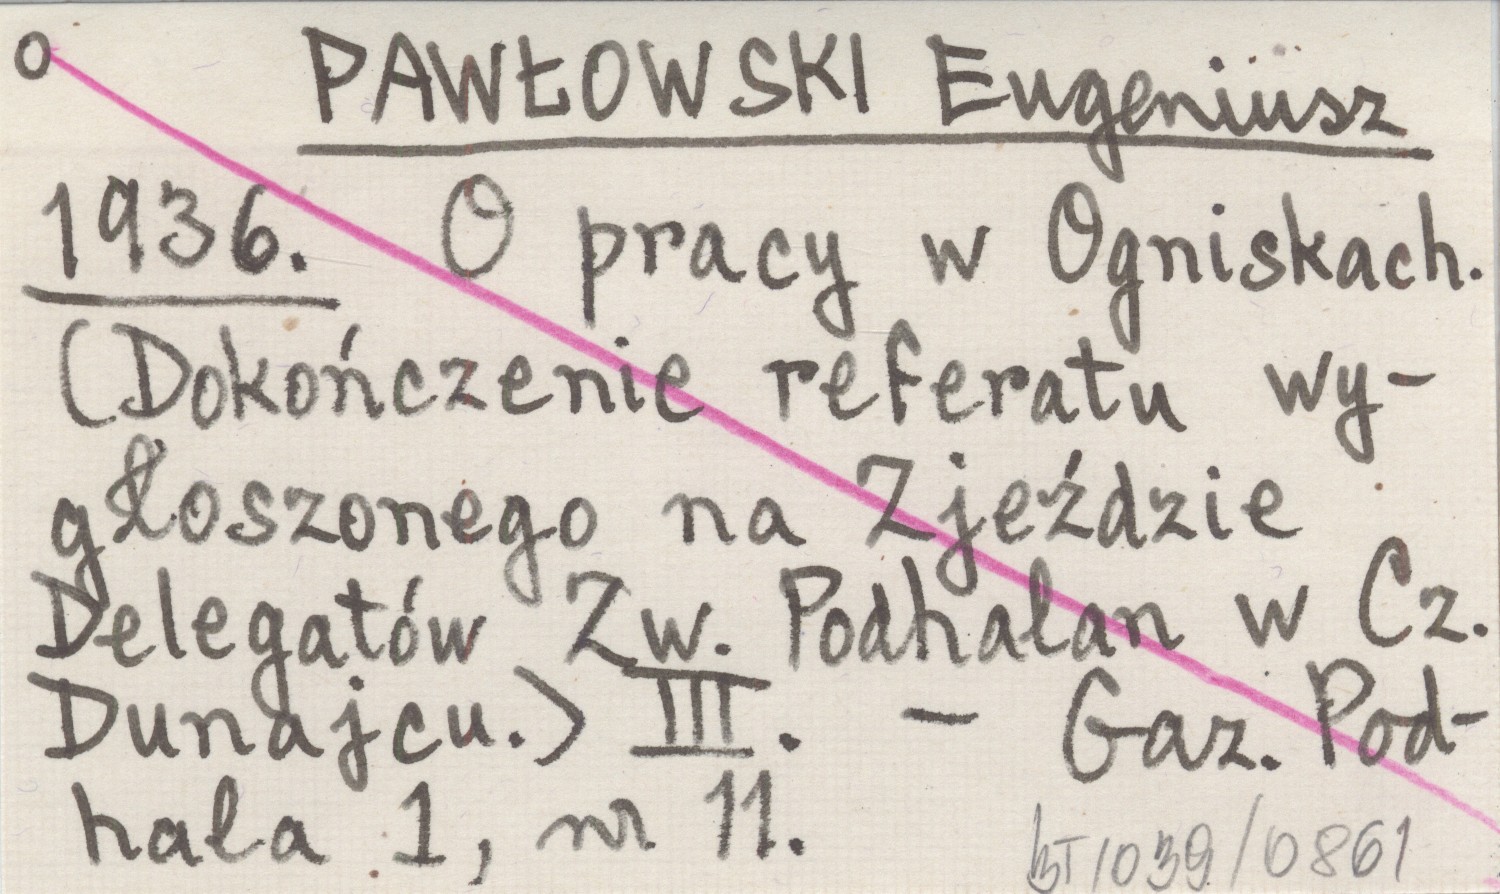 o PAWŁOWSKI Eugeniusz
1936. O pracy w Ogniskach.
(Dokończenie referatu wy-
głoszonego na Zjeździe
Delegatów Zw. Podhalan w Cz.
Dunajcu.) III. - Gaz. Pod-
hala 1, nr 11.
BT/039/0861